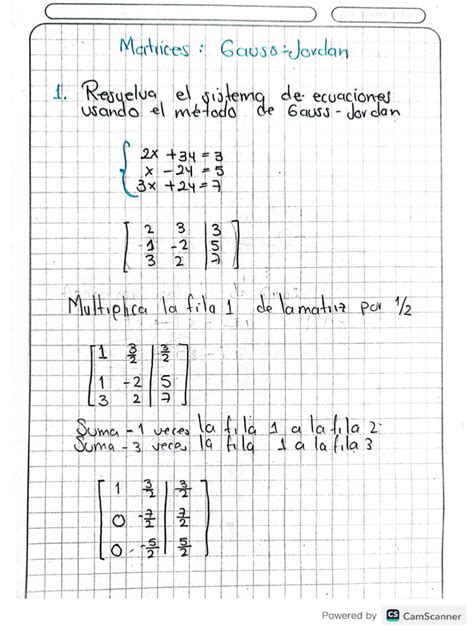 Matrices: Gauss-Jordan
1. Resuelva el sistema de ecuaciones
usando el método de Gauss-Jordan
2x + 3y = 3
x - 2y = 5
3x + 2y = 7
2 3 3
1 -2 5
3 2 7
Multiplica la fila 1 de la matriz por 1/2
1 3/2 3/2
1 -2 5
3 2 7
Suma -1 veces la fila 1 a la fila 2
Suma -3 veces la fila 1 a la fila 3
1 3/2 3/2
0 -7/2 7/2
0 -5/2 5/2
Powered by CS CamScanner